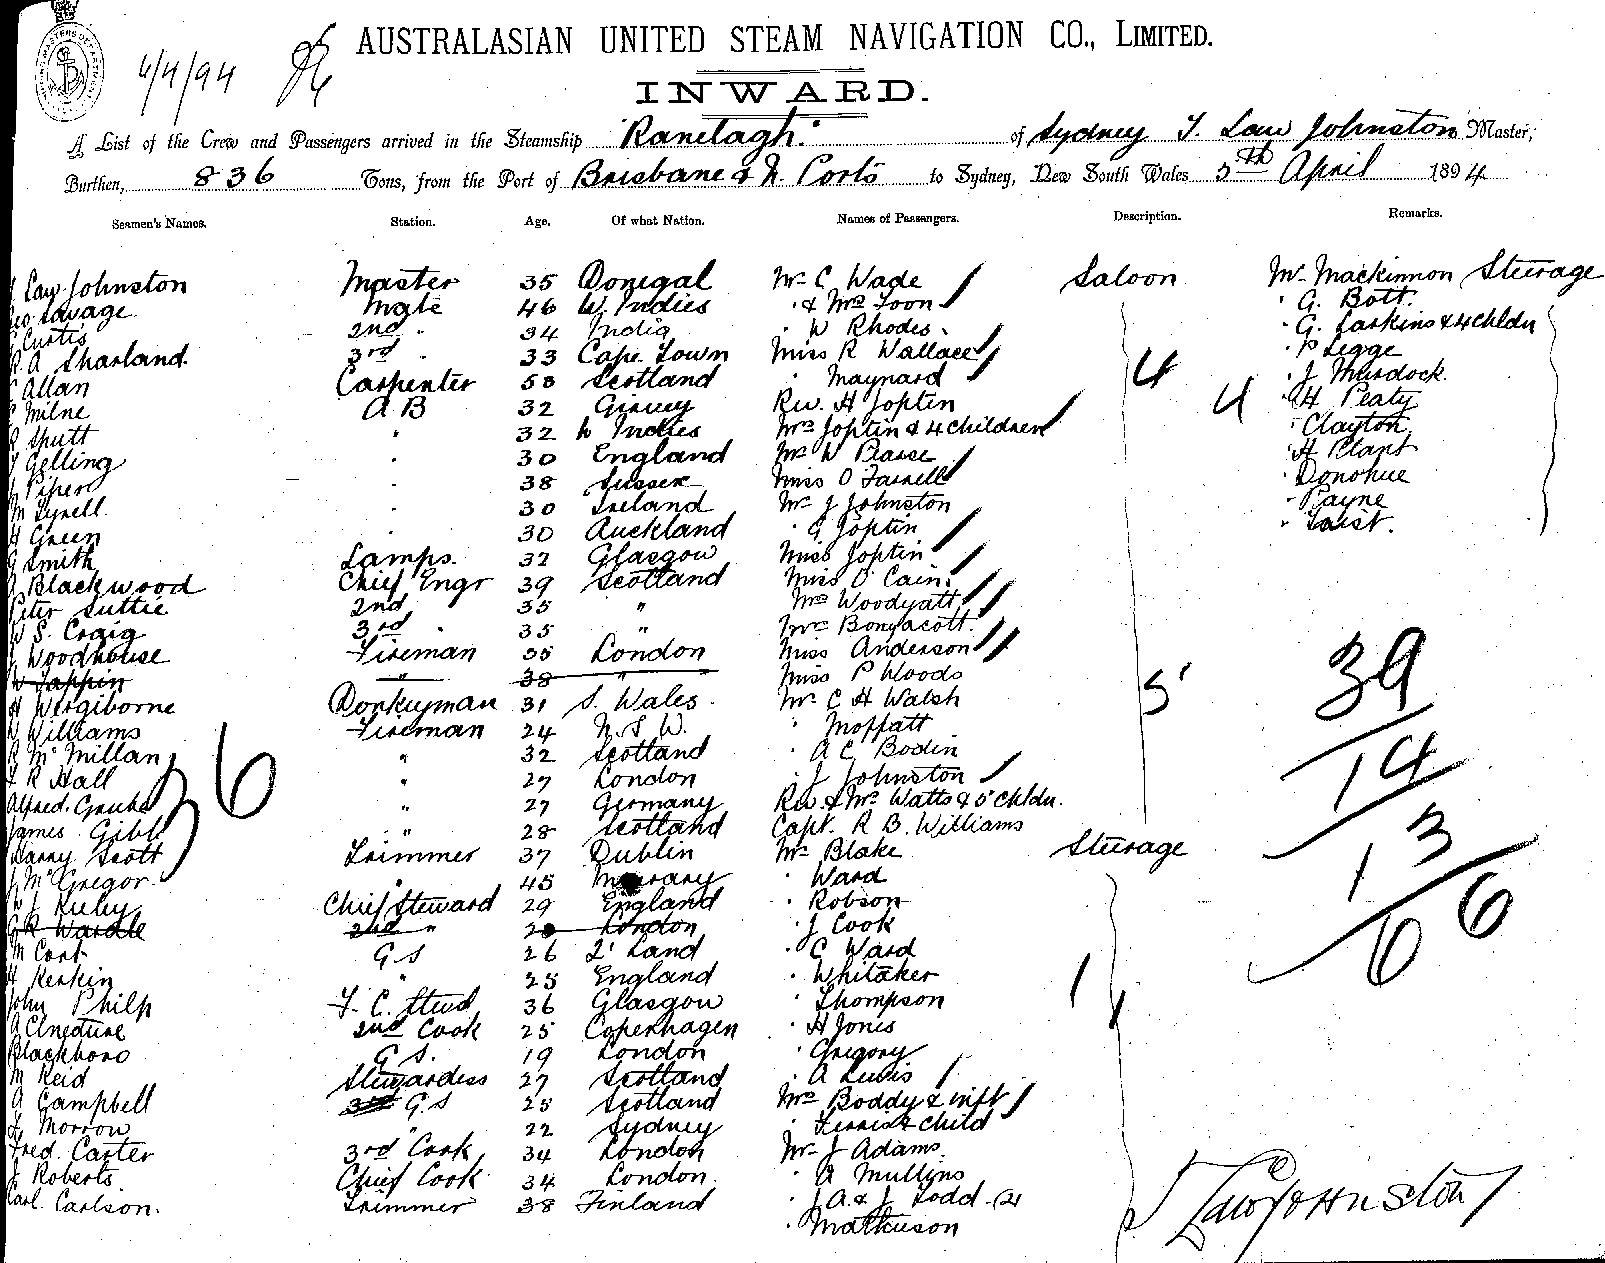 4/4/94
AUSTRALASIAN UNITED STEAM NAVIGATION CO., LIMITED.
INWARD.
A List of the Crew and Passengers arrived in the Steamship "Ranelagh" of Sydney T. Law Johnston Master,
Burthen, 836 Tons, from the Port of Brisbane & N. Ports to Sydney, New South Wales 5th April 1894
Seamen's Names. Station. Age. Of what Nation. Names of Passengers. Description. Remarks.
Law Johnston Master 35 Donegal Mr C Wade Saloon Mr Mackinnon Steerage
Savage Mate 46 W. Indies " & Mrs Toon " G. Bott.
Curtis 2nd " 34 India " W Rhodes " G. Larkins & 4 chldn
A Sharland 3rd " 33 Cape Town Miss R Wallace " P Legge
Allan Carpenter 58 Scotland " Maynard 4 " J Murdock.
Milne A B 32 Rev. H Joplin 4 " H Peaty
" 32 W Indies Mrs Joplin & 4 children " Clayton
Gelling " 30 England Mr W Pearse " H Plant
Piper " 38 Sussex Miss O Farrell " Donohue
M Tyrell " 30 Ireland Mr J Johnston " Payne
H Green " 30 Auckland " G Joplin
G Smith Lamps. 32 Glasgow Miss Joplin
J Blackwood Chief Engr 39 Scotland Miss O Cain
Peter Suttie 2nd 35 " Mrs Woodyatt
W S. Craig 3rd " 35 " Mrs Bonyacott.
J Woodhouse Fireman 35 London Miss Anderson 39
W Tappin " 38 " Miss P Woods
H Donkeyman 31 S. Wales Mr C H Walsh 5
W Williams Fireman 24 N. S W. " Moffatt
R McMillan " 32 Scotland " A C Bodin 14
R Hall 6 " 27 London " J Johnston
Alfred " 27 Germany Rev & Mrs Watts & 5 chldn.
James Gibb " 28 Scotland Capt. R B. Williams
Harry Scott Trimmer 37 Dublin Mr Blake Steerage 13
J McGregor " 45 " Ward
Chief Steward 29 England " Robson
G R Wardle 2nd " London " J Cook 66
M Cort G S 26 Q'Land " C Ward
H " 25 England " Whitaker
John Philp F. C. Stwd 36 Glasgow " Thompson 1
2nd Cook 25 Copenhagen " H Jones
Blackboro G S. 19 London " Gregory
M Reid Stewardess 27 Scotland " A Lewis
A Campbell G.S 25 Scotland Mrs Boddy & inft
J. Morrow " 22 Sydney " & Child
Fred. Carter 3rd Cook 34 London Mr J Adams
J Roberts Chief Cook 34 London " A Mullins
Carl Carlson. Trimmer 38 Finland " J A & J Todd (2)
" Mathieson
T Law Johnston